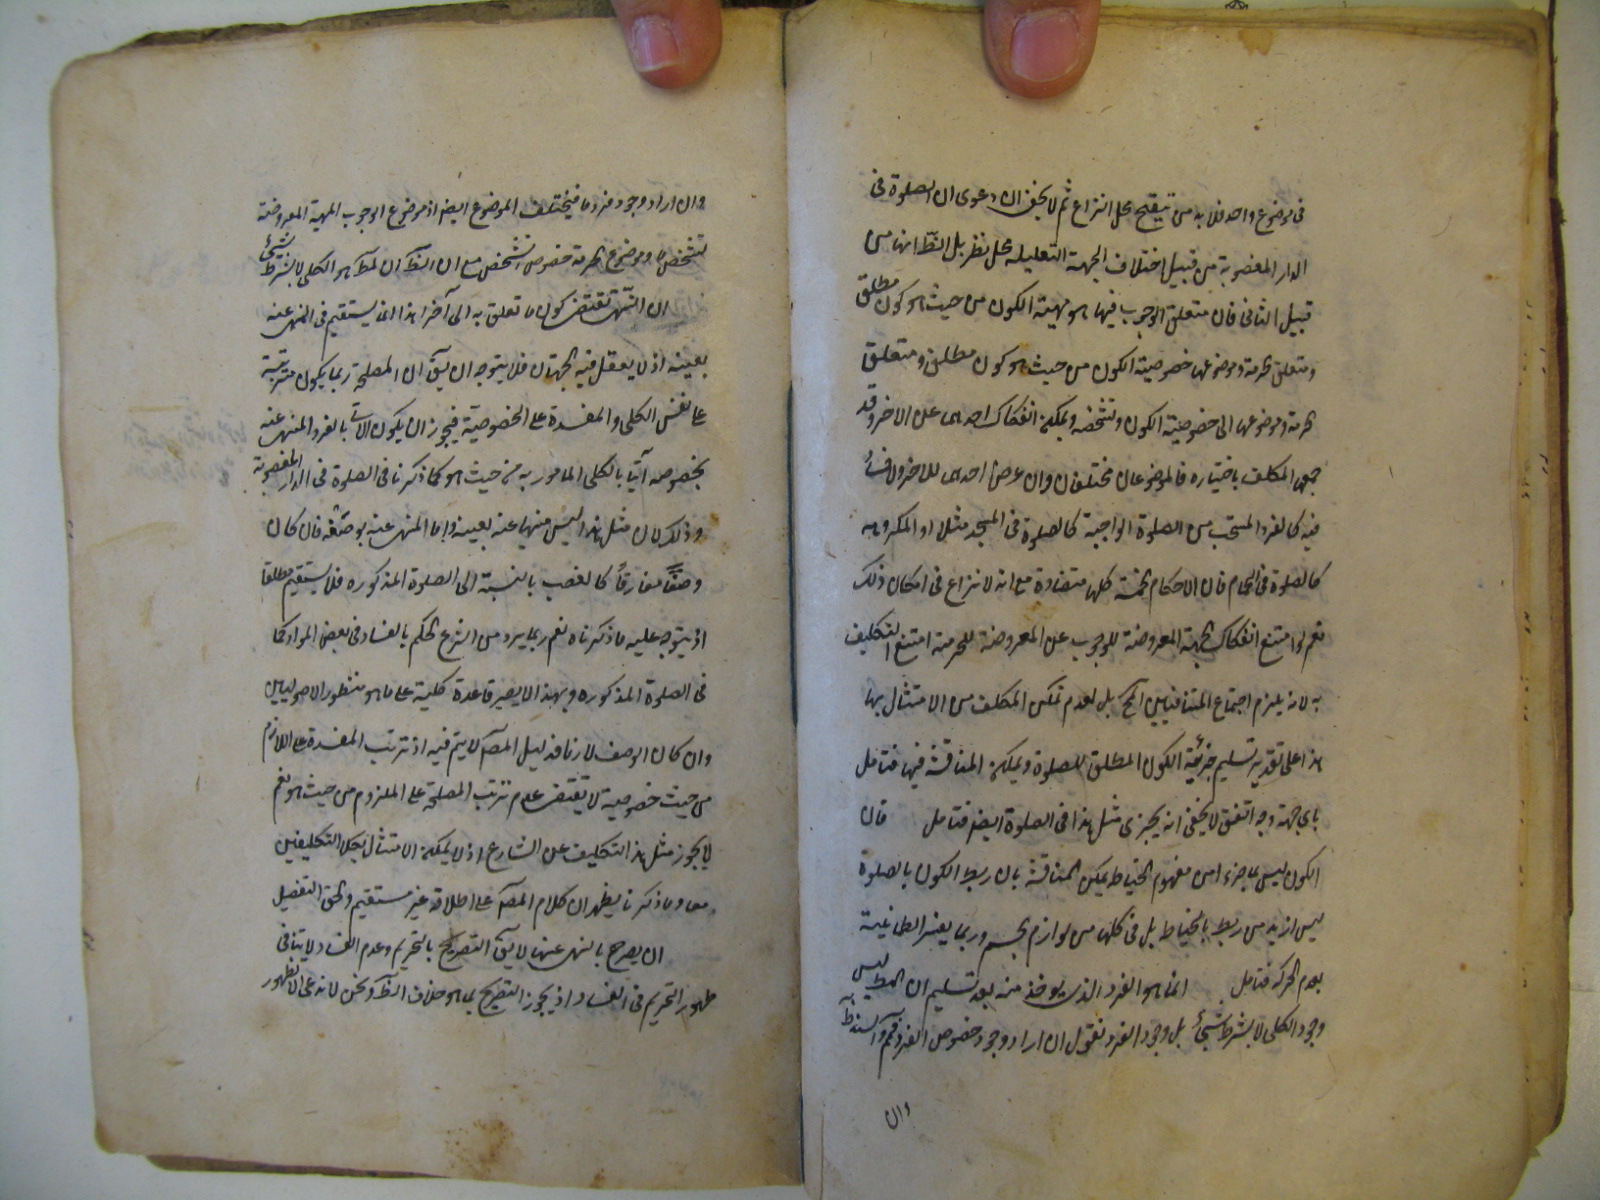 فى موضوع واحد فلا بد من تنقيح محل النزاع ثم لا يخفى ان دعوى ان الصلوة فى
الدار المغصوبة من قبيل اختلاف الجهة التعليلية محل نظر بل الظ انها من
قبيل الثانى فان متعلق الوجوب فيها هو مهية الكون من حيث هو كون مطلق
ومتعلق الحرمة وموضوعها خصوصية الكون من حيث هو كون مطلق ومتعلق
الحرمة وموضوعها الى خصوصية الكون وتشخصه ويمكن انفكاك احدهما عن الاخر وقد
جمعهما المكلف باختياره فالموضوعان مختلفان وان عرض احدهما للاخر ولا
فيه كالفرد المستحب من الصلوة الواجبة كالصلوة فى المسجد مثلا او المكروه
كالصلوة فى الحمام فان الاحكام الخمسة كلها متضادة مع انه لا نزاع فى امكان ذلك
نعم لو امتنع انفكاك الجهة المعروضة للوجوب عن المعروضة للحرمة امتنع التكليف
به لا نه يلزم اجتماع المتنافيين بل لعدم تمكن المكلف من الامتثال بها
هذا على تقدير تسليم جزئية الكون المطلق للصلوة ويمكن المناقشة فيها فتامل
باى جهة وجه اتفق لا يخفى انه يجرى مثل هذا فى الصلوة ايضا فتامل قال
الكون ليس بما جزء من مفهوم الخياطة يمكن المناقشة بان ربط الكون بالصلوة
ليس ازيد من ربط بالخياطة بل فى كلها من لوازم الجسم وربما يفسر الطمانينة
بعدم الحركة فتامل انما هو الفرد الذى يوخذ منه بعد تسليم ان المط ليس
وجود الكلى لا بشرط شئ بل وجود الفرد نقول ان اراد وجود خصوص الفرد
وان
وان اراد وجود فرد ما فيختلف الموضوع ايضا اذ موضوع الوجوب المهية المعروضة
لتشخص ما وموضوع الحرمة خصوص التشخص مع ان الظ ان المط هو الكلى لا بشرط شئ
ان النهى يقتضى كون ما تعلق به الى آخر هذا انما يستقيم فى المنهى عنه
بعينه اذ لا يعقل فيه الجهتان فلا يتوجه ان يق ان المصلحة ربما يكون مترتبة
على نفس الكلى والمفسدة على الخصوصية فيجوز ان يكون الاتى بالفرد المنهى عنه
بخصوصه آتيا بالكلى المامور به من حيث هو كما ذكرنا فى الصلوة فى الدار المغصوبة
وذلك لان مثل هذا ليس منهيا عنه بعينه واما المنهى عنه بوصفه فان كان
وصفا مفارقا كالغصب بالنسبة الى الصلوة المذكوره فلا يستقيم مطلقا
اذ يتوجه عليه ما ذكرناه نعم ربما يرد من الشرع الحكم بالفساد فى بعض المواد كما
فى الصلوة المذكوره وبهذا لا يصير قاعدة كلية على ما هو منظور الاصوليين
وان كان الوصف لازما فدليل المصم لا يتم فيه اذ ترتب المفسدة على اللازم
من حيث خصوصية لا يقتضى عدم ترتب المصلحة على الملزوم من حيث هو نعم
لا يجوز مثل هذا التكليف عن الشارع اذ لا يمكن الامتثال بكلا التكليفين
معا وما ذكرنا يظهر ان كلام المصم على اطلاقه غير مستقيم والحق التفصيل
ان يصرح بالنهى عنها لا يق التصريح بالتحريم وعدم الفساد لا ينافى
ظهور التحريم فى الفساد اذ يجوز التصريح بما هو خلاف الظ ونحن لا ندعى الا الظهور